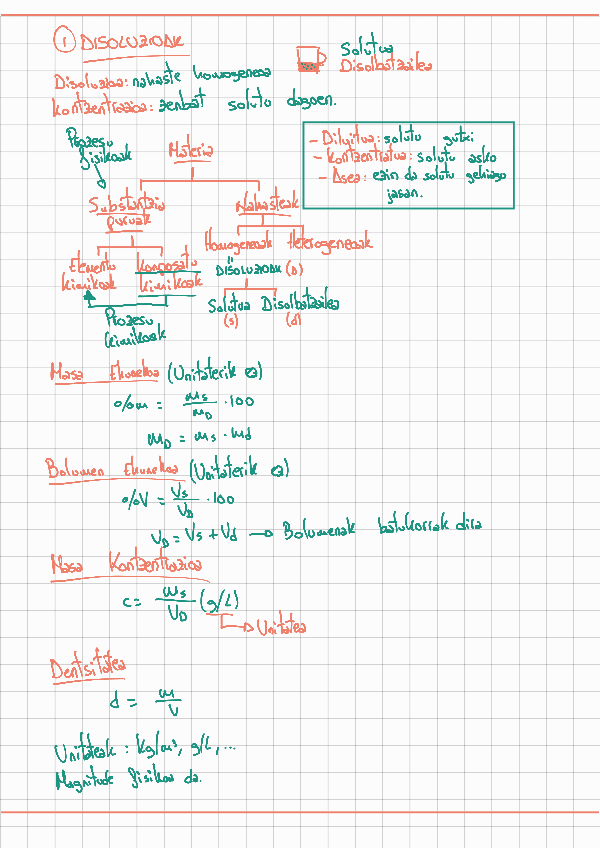 ① DISOLUZIOAK
Solutua
Disolbatzailea
Disoluzioa: nahaste homogeneoa
Kontzentrazioa: zenbat solutu dagoen.
- Diluitua: solutu gutxi
- Kontzentratua: solutu asko
- Asea: ezin da solutu gehiago
jasan.
Prozesu
fisikoak
Materia
Substantzia
puruak
Nahasteak
Homogeneoak Heterogeneoak
Elementu
kimikoak
Konposatu
kimikoak
"
DISOLUZIOAK (D)
Solutua Disolbatzailea
(s) (d)
Prozesu
kimikoak
Masa Ehunekoa (Unitaterik ez)
%m = ms/mD · 100
mD = ms · md
Bolumen Ehunekoa (Unitaterik ez)
%V = Vs/VD · 100
VD = Vs + Vd → Bolumenak batukorrak dira
Masa Kontzentrazioa
c = ms/VD (g/L)
→ Unitatea
Dentsitatea
d = m/V
Unitateak: Kg/m³, g/L, ...
Magnitude fisikoa da.